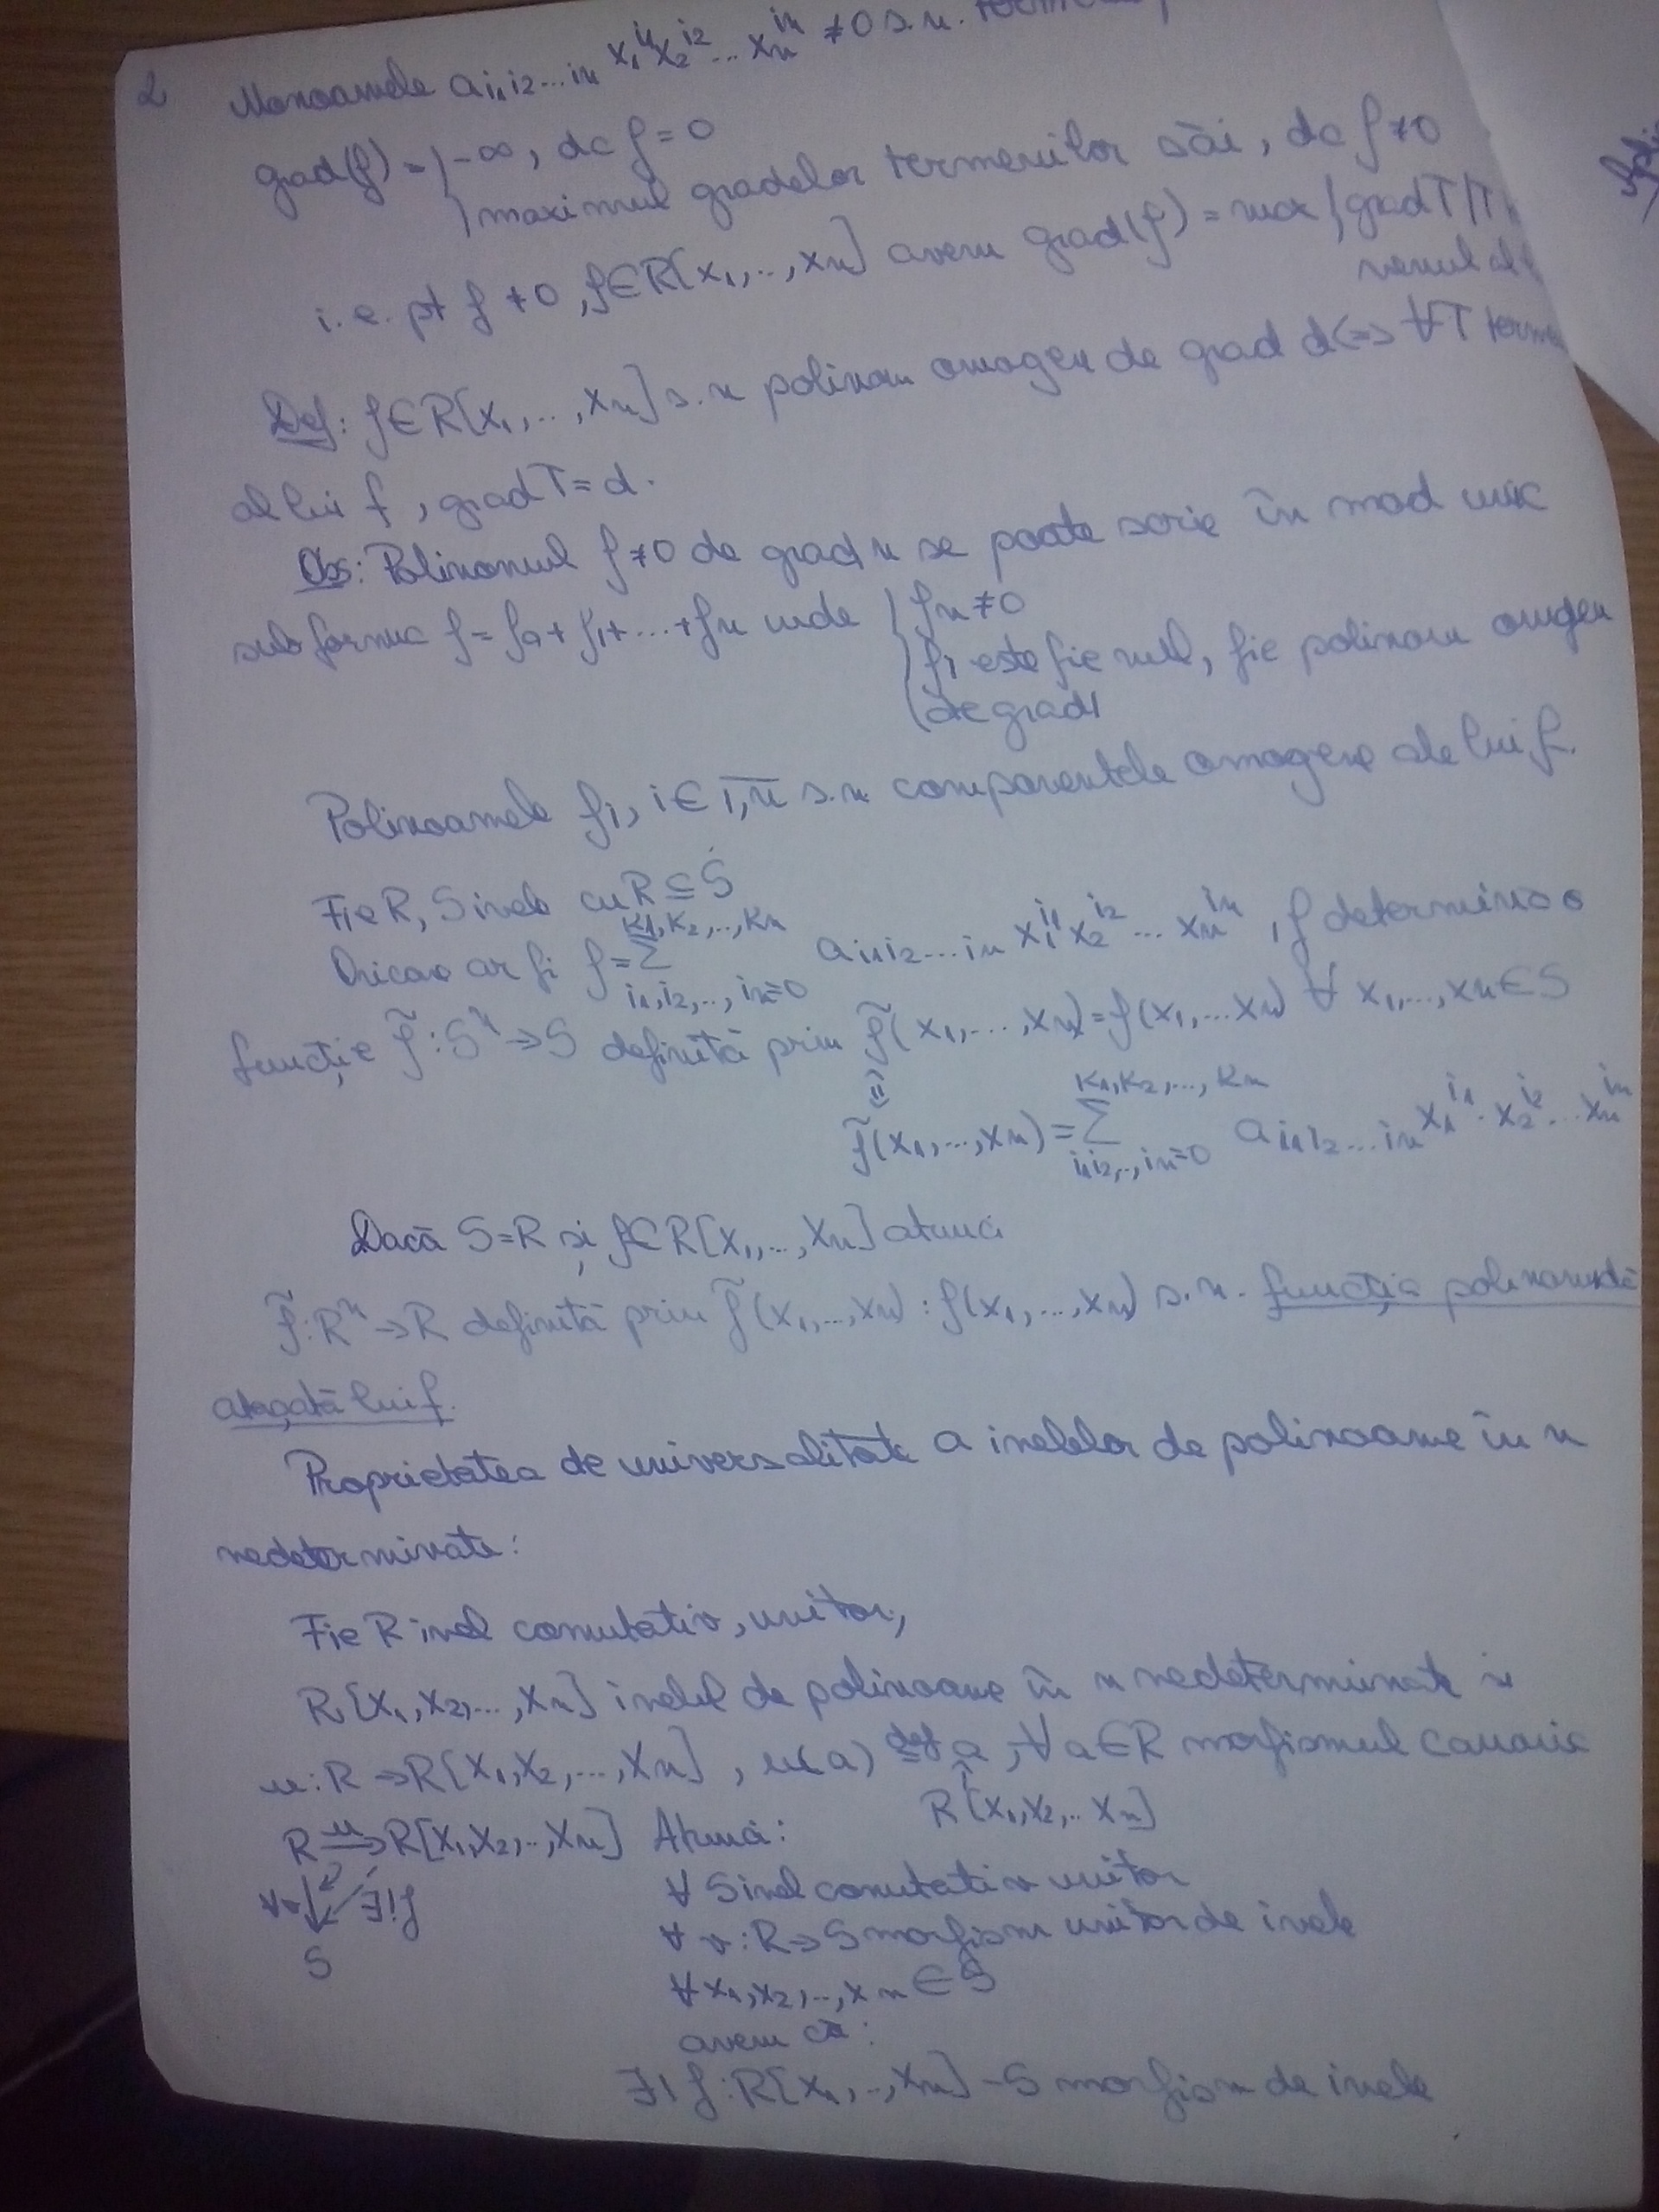 2 Monoamele a_{i1,i2...in} x_1^{i1} x_2^{i2} ... x_n^{in} ≠ 0 s.n.
grad(f) = { -∞, dc f = 0
maximul gradelor termenilor săi, dc f ≠ 0
i.e. pt f ≠ 0, f ∈ R[X_1,..,X_n] avem grad(f) = max { grad T / T
Def: f ∈ R[X_1,..,X_n] s.n polinom omogen de grad d <=> ∀T
al lui f, grad T = d.
Obs: Polinomul f ≠ 0 de grad n se poate scrie în mod unic
sub forma f = f_0 + f_1 + ... + f_n unde { f_n ≠ 0
f_i este fie nul, fie polinom omogen
de grad i
Polinoamele f_i, i ∈ \overline{1,n} s.n componentele omogene ale lui f.
Fie R, S inele cu R ⊆ S
Oricare ar fi f = Σ_{i1,i2,..,in=0}^{k1,k2,..,kn} a_{i1i2...in} x_1^{i1} x_2^{i2} ... x_n^{in}, f determină o
funcție f̃: S^n → S definită prin f̃(x_1,...,x_n) = f(x_1,...x_n) ∀ x_1,...,x_n ∈ S
f̃(x_1,...,x_n) = Σ_{i1i2,..,in=0}^{k1,k2,...,kn} a_{i1i2...in} x_1^{i1} · x_2^{i2} ... x_n^{in}
Dacă S = R și f ∈ R[X_1,..,X_n] atunci
f̃: R^n → R definită prin f̃(x_1,..,x_n) : f(x_1,...,x_n) s.n. funcția polinomială
atașată lui f.
Proprietatea de universalitate a inelelor de polinoame în n
nedeterminate:
Fie R inel comutativ, unitar,
R[X_1,X_2,...,X_n] inelul de polinoame în n nedeterminate și
u: R → R[X_1,X_2,...,X_n], u(a) \overset{def}{=} a, ∀ a ∈ R morfismul canonic
R[X_1,X_2,..X_n]
R \overset{u}{→} R[X_1,X_2,..,X_n] Atunci:
∀ S inel comutativ unitar
∀v ∃! f
∀ v: R → S morfism unitar de inele
S
∀ x_1,x_2,..,x_n ∈ S
avem că:
∃! f: R[X_1,..,X_n] - S morfism de inele